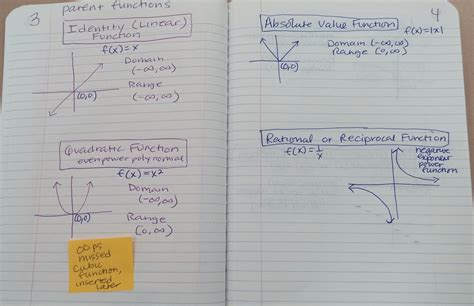 3
parent functions
Identity (Linear)
Function
f(x) = x
Domain
(-∞,∞)
Range
(-∞,∞)
(0,0)
Quadratic Function
even power polynomial
f(x) = x²
Domain
(-∞,∞)
Range
[0,∞)
(0,0)
oops
missed
Cubic
function,
inserted
later
4
Absolute Value Function
f(x)=|x|
Domain (-∞,∞)
Range [0,∞)
(0,0)
Rational or Reciprocal Function
f(x)=1/x
negative
exponent
power
function